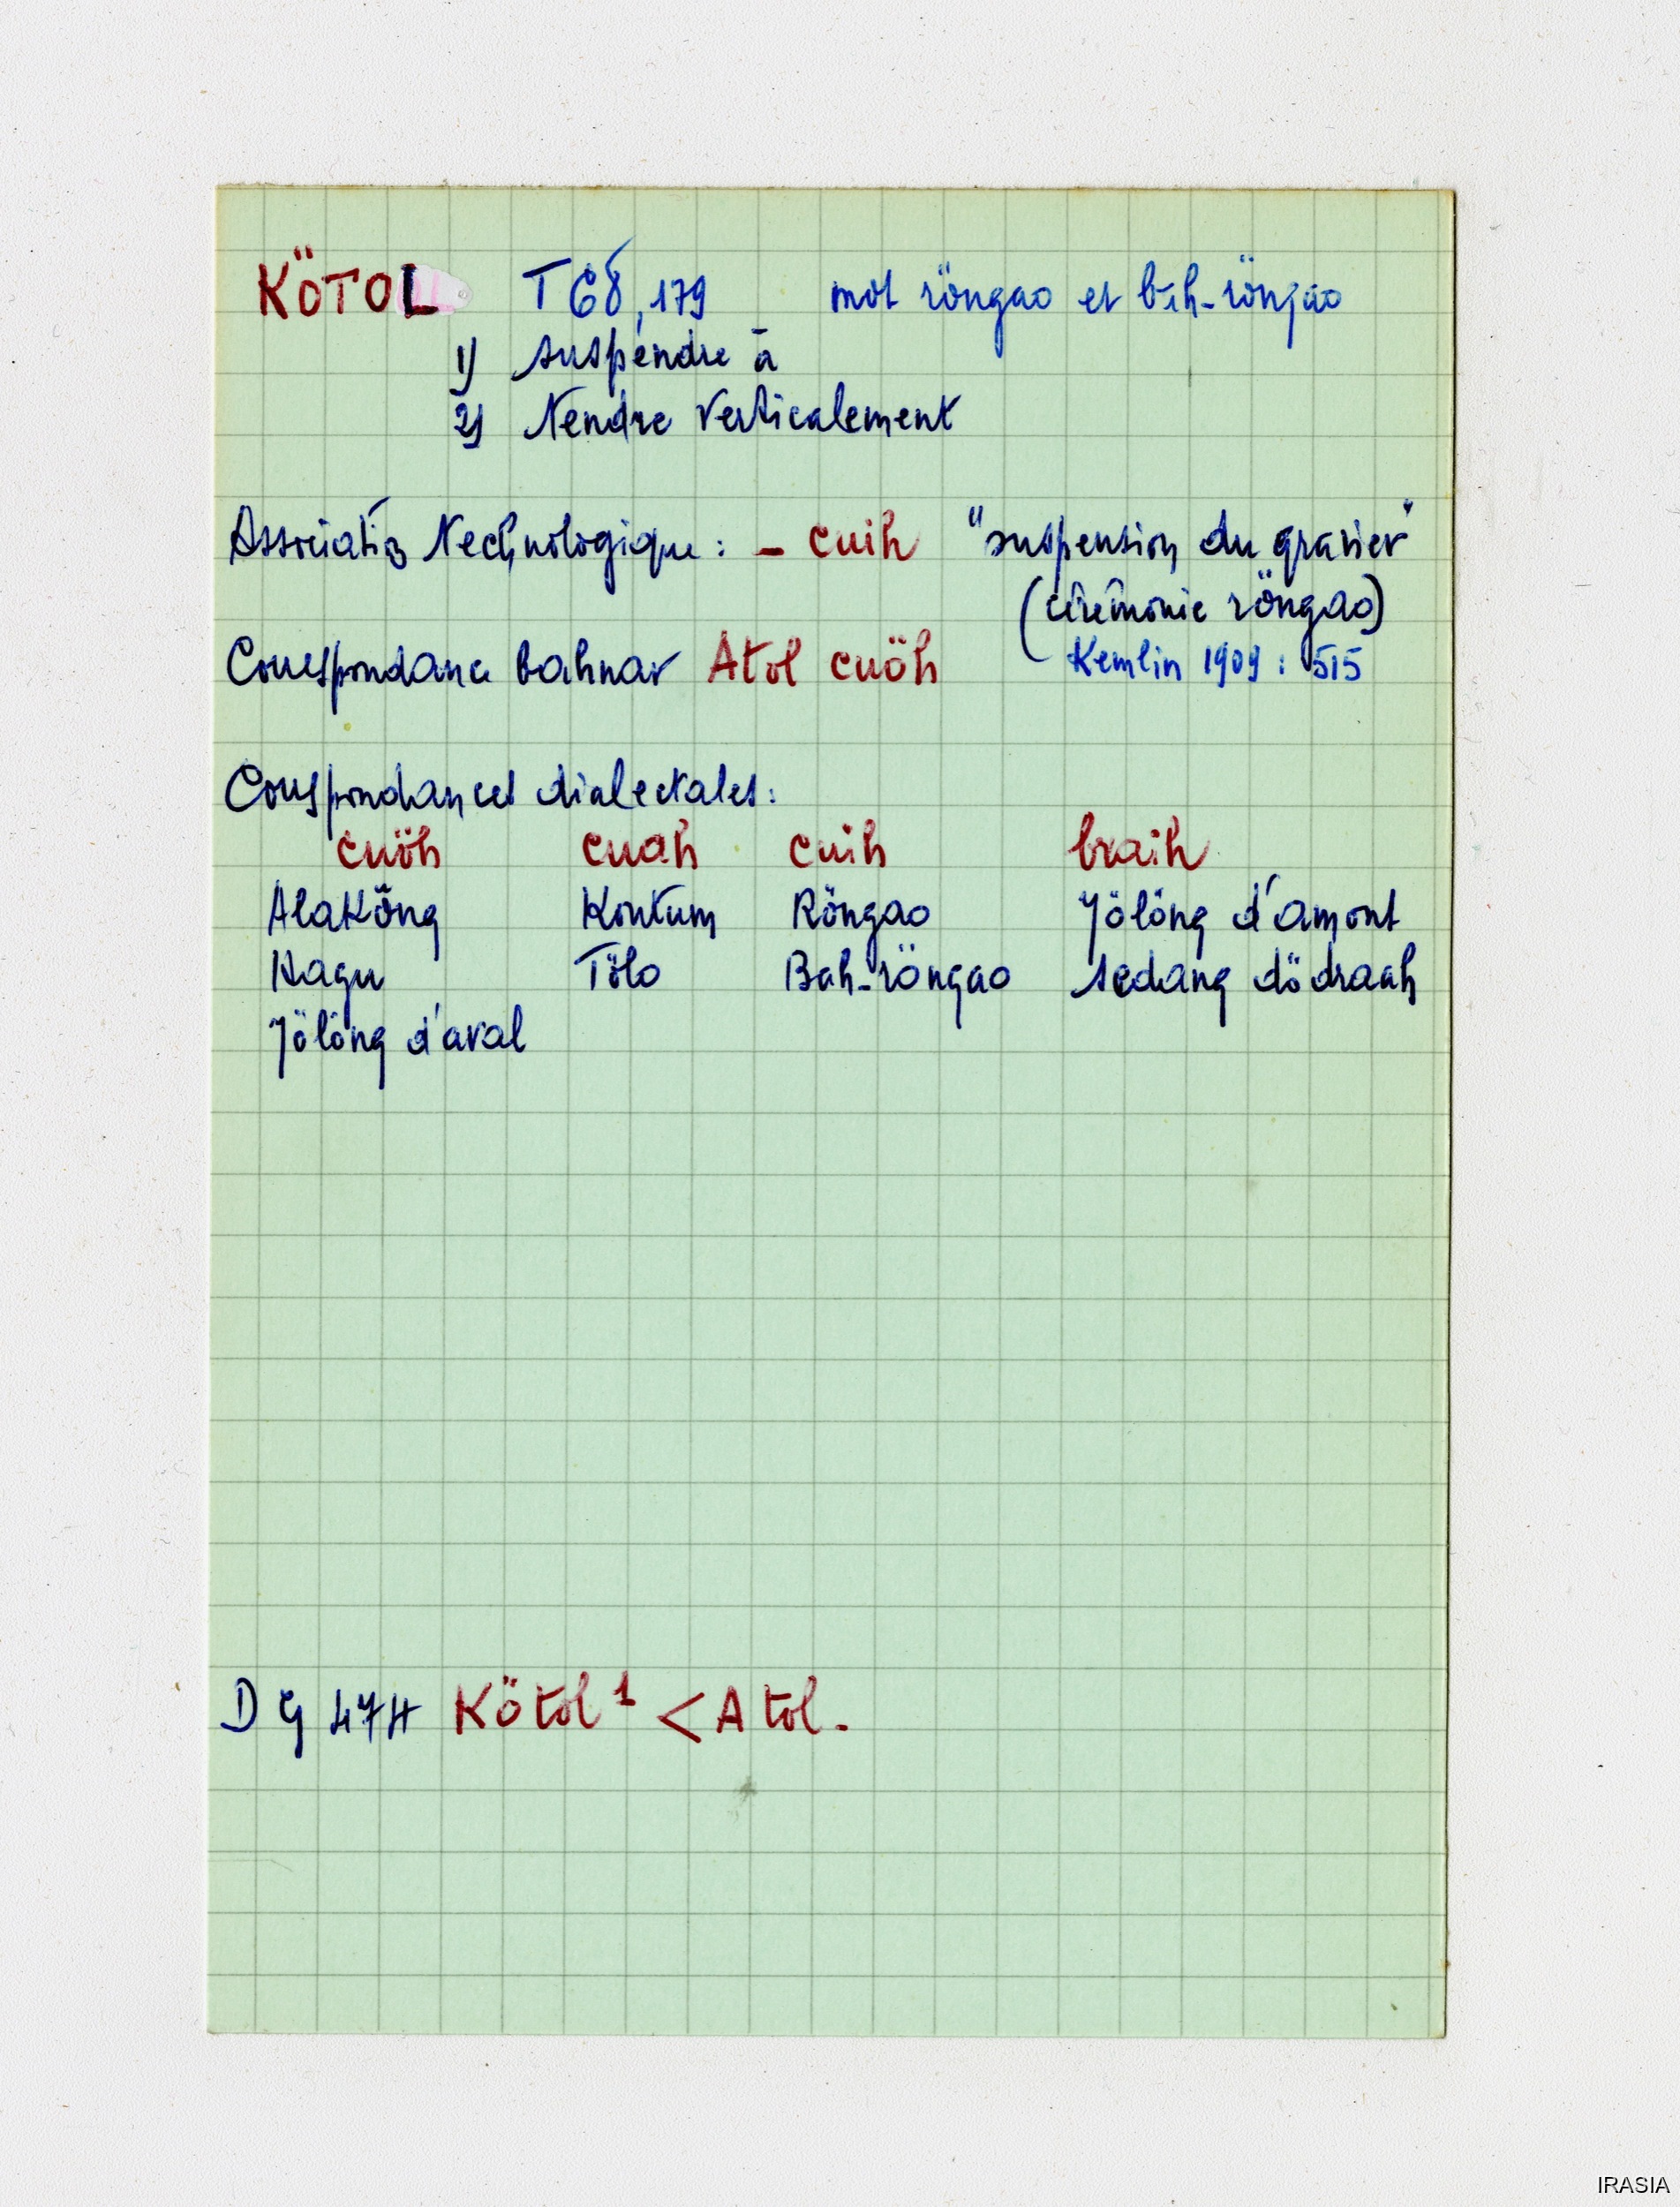 KÖTOL T68, 179 mot röngao et bah-röngao
1) suspendre à
2) tendre verticalement
Association technologique : – cuih "suspension du gravier"
(cérémonie röngao)
Correspondance bahnar Atol cuöh Kemlin 1909 : 515
Correspondances dialectales :
cuöh cuah cuih braih
AlaKông Kontum Röngao Jölöng d'amont
Hagu Tölo Bah-röngao Sedang dödraah
Jölöng d'aval
DG 474 Kötol¹ < Atol.
IRASIA